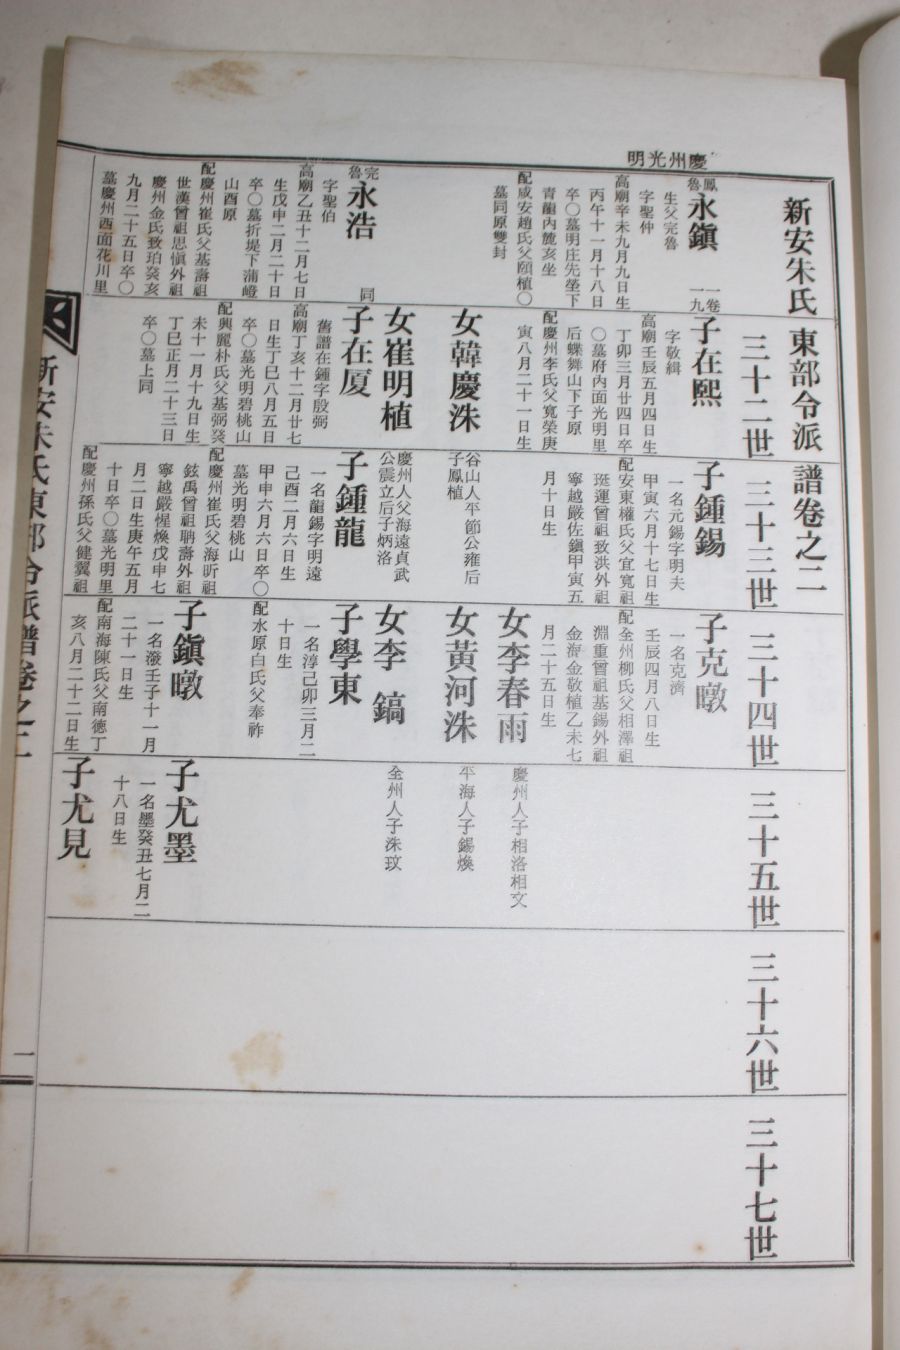 慶州光明
新安朱氏東部令派譜卷之二
三十二世
三十三世
三十四世
三十五世
三十六世
三十七世
鳳魯
永鎭
一卷
一九
生父完魯
字聖仲
高廟辛未九月九日生
丙午十一月十八日
卒〇墓明庄先塋下
青龍內麓亥坐
配咸安趙氏父頤植〇
墓同原雙封
完魯
永浩
同
字聖伯
高廟乙丑十二月七日
生戊申二月二十日
卒〇墓折堤下蒲嶝
山酉原
配慶州崔氏父基壽祖
世漢曾祖思愼外祖
慶州金氏致珀癸亥
九月二十五日卒〇
墓慶州西面花川里
子在熙
字敬緝
高廟壬辰五月四日生
丁卯三月廿四日卒
〇墓府內面光明里
后蝶舞山下子原
配慶州李氏父寬榮庚
寅八月二十一日生
女韓慶洙
女崔明植
子在厦
舊譜在鍾字殷弼
高廟丁亥十二月廿七
日生丁巳八月五日
卒〇墓光明碧桃山
配興麗朴氏父基弼癸
未十一月十九日生
丁巳正月二十三日
卒〇墓上同
子鍾錫
一名元錫字明夫
甲寅六月十七日生
配安東權氏父宜寬祖
珽運曾祖致洪外祖
寧越嚴佐鎭甲寅五
月十日生
谷山人平節公雍后
子鳳植
慶州人父海遠貞武
公震立后子炳洛
子鍾龍
一名龍錫字明遠
己酉二月六日生
甲申六月六日卒〇
墓光明碧桃山
配慶州崔氏父海昕祖
鉉禹曾祖聃壽外祖
寧越嚴惺煥戊申七
月二日生庚午五月
十日卒〇墓光明里
配慶州孫氏父健翼祖
子克暾
一名克濟
壬辰四月八日生
配全州柳氏父相澤祖
淵重曾祖基錫外祖
金海金敬植乙未七
月二十五日生
女李春雨
女黃河洙
女李鎬
子學東
一名淳己卯三月二
十日生
配水原白氏父奉祚
子鎭暾
一名潑壬子十一月
二十一日生
配南海陳氏父南德丁
亥八月二十二日生
慶州人子相洛相文
平海人子錫煥
全州人子洙玟
子尤墨
一名墨癸丑七月二
十八日生
子尤見
新安朱氏東部令派譜卷之二
二